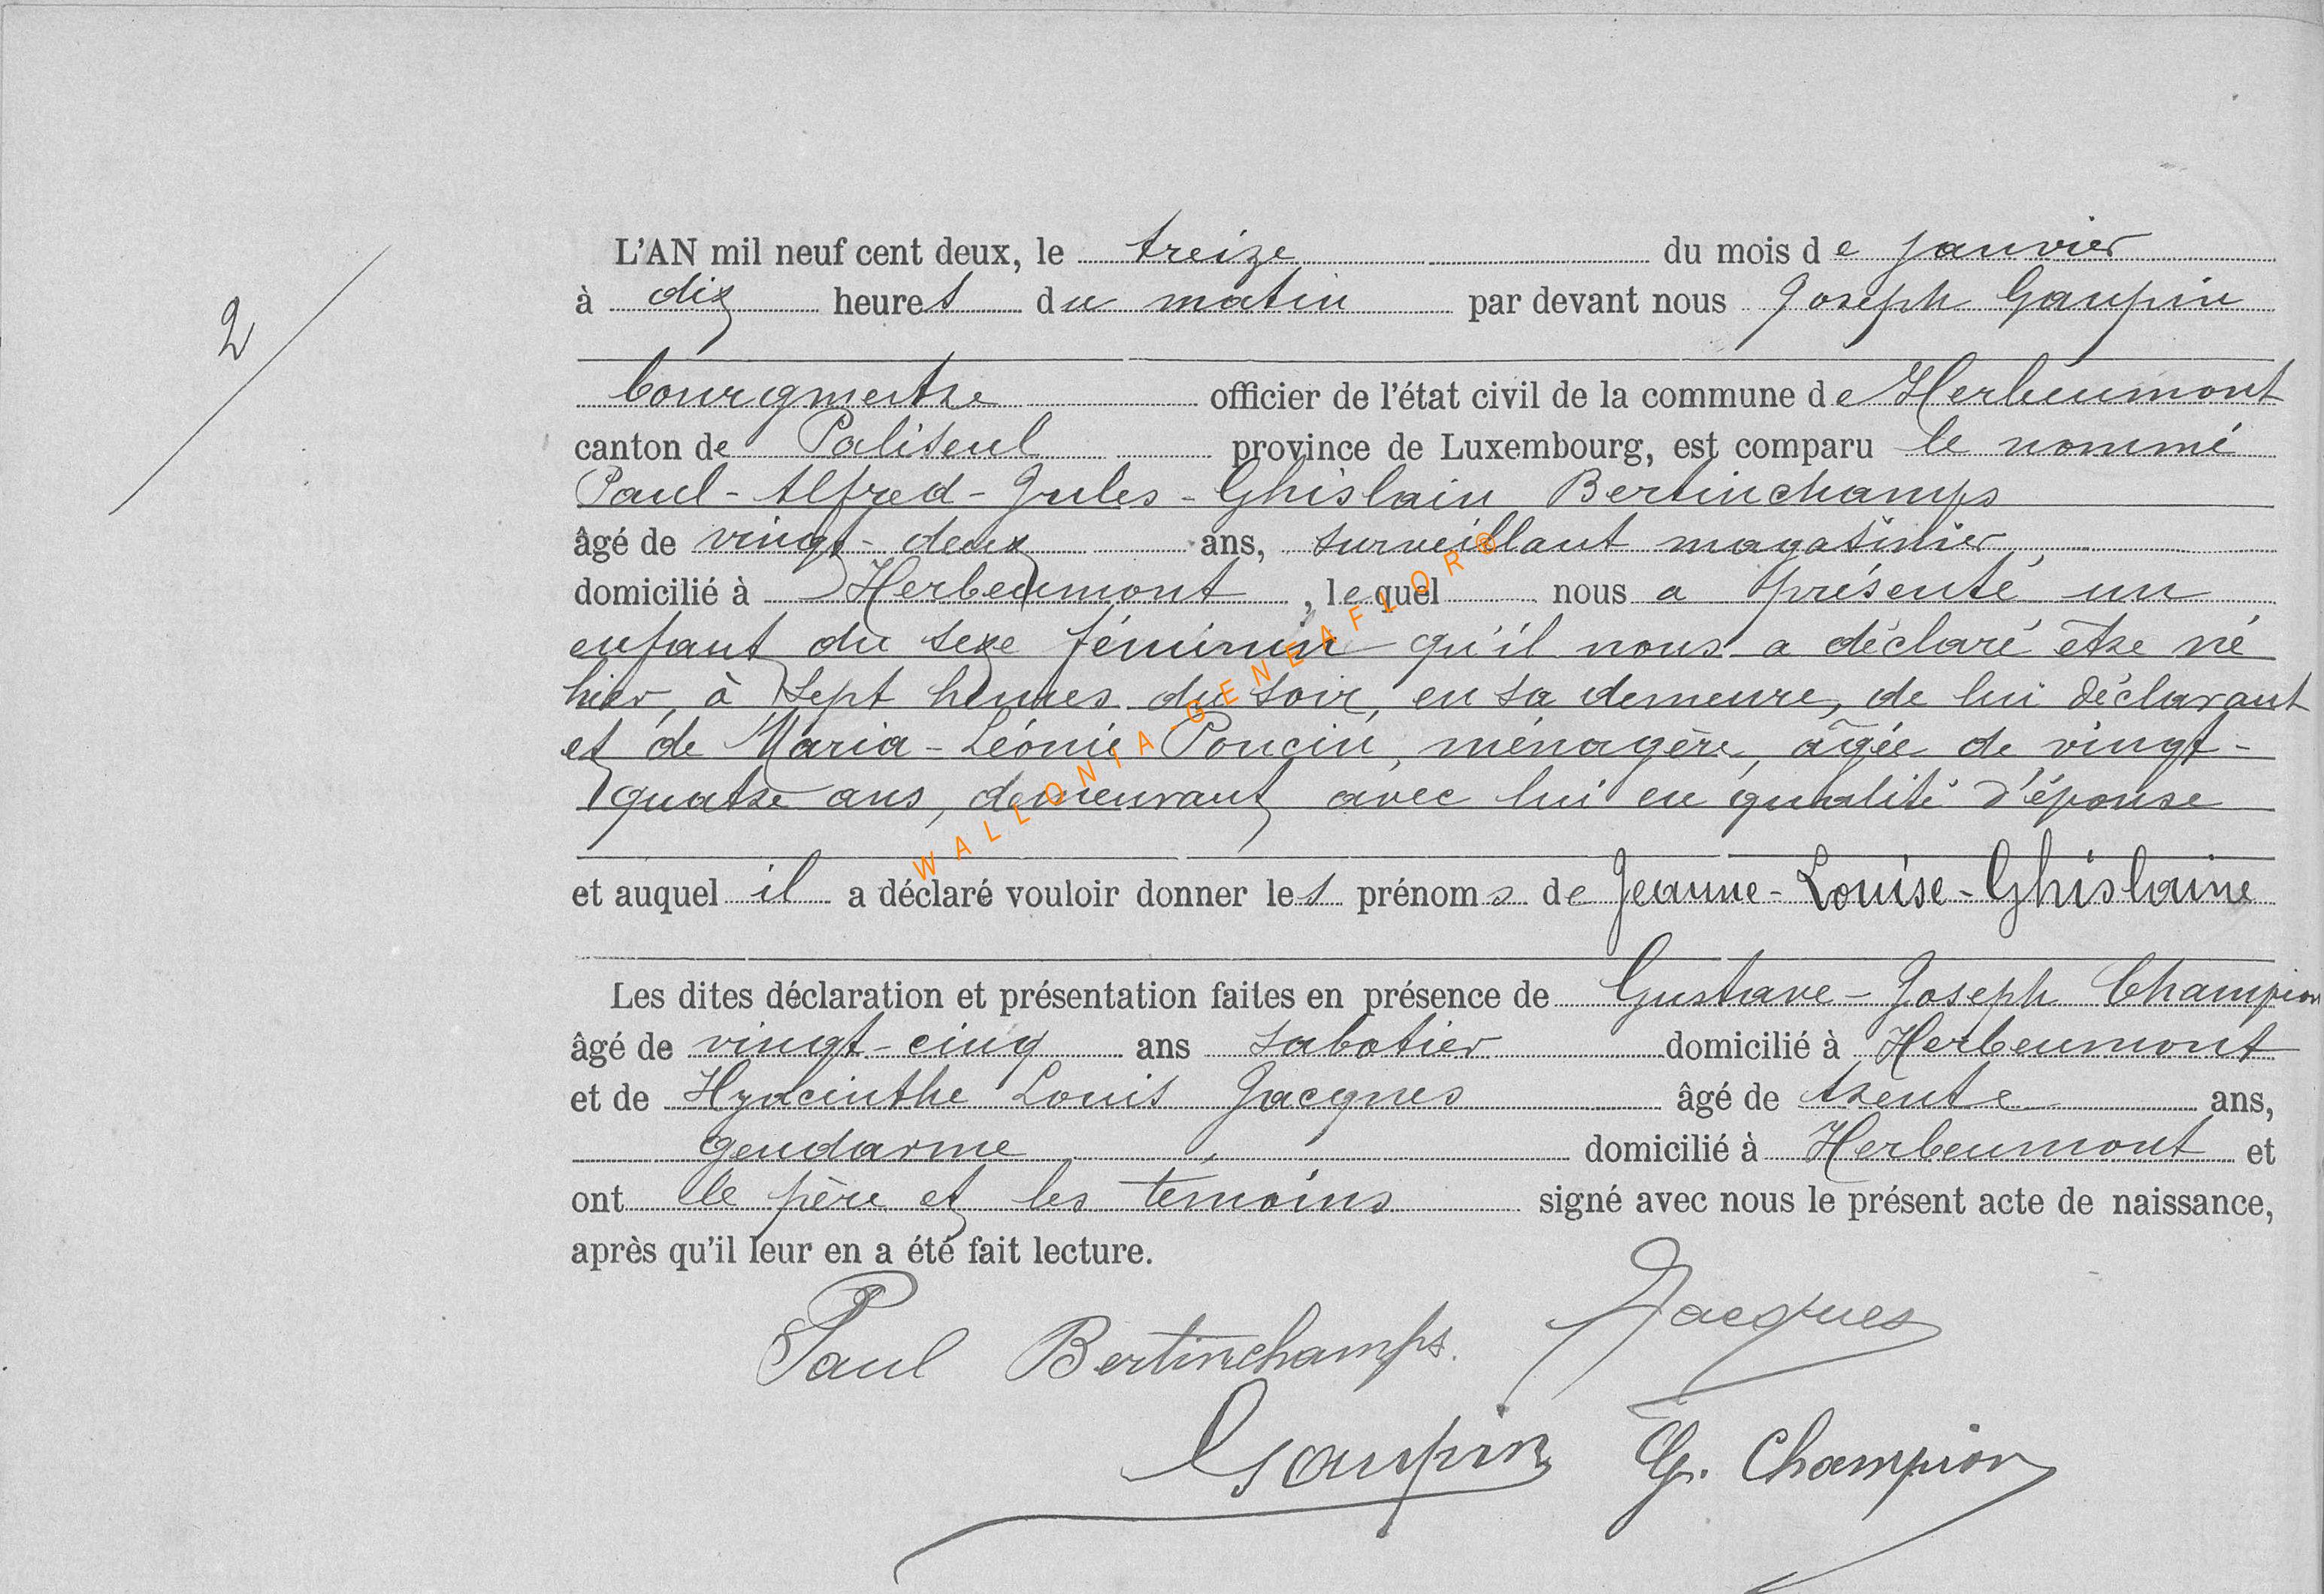 2
L'AN mil neuf cent deux, le treize du mois de janvier
à dix heures du matin par devant nous Joseph Gaupin
bourgmestre officier de l'état civil de la commune de Herbeumont
canton de Paliseul province de Luxembourg, est comparu le nommé
Paul-Alfred-Jules-Ghislain Bertinchamps
âgé de vingt-deux ans, surveillant magasinier,
domicilié à Herbeumont, lequel nous a présenté un
enfant du sexe féminin qu'il nous a déclaré être né
hier, à sept heures du soir, en sa demeure, de lui déclarant
et de Maria-Léonie Poncin, ménagère, âgée de vingt-
quatre ans, demeurant avec lui en qualité d'épouse
et auquel il a déclaré vouloir donner les prénoms de Jeanne-Louise-Ghislaine
Les dites déclaration et présentation faites en présence de Gustave-Joseph Champion
âgé de vingt-cinq ans sabotier domicilié à Herbeumont
et de Hyacinthe Louis Jacques âgé de trente ans,
gendarme domicilié à Herbeumont et
ont le père et les témoins signé avec nous le présent acte de naissance,
après qu'il leur en a été fait lecture.
Paul Bertinchamps. Jacques
Gaupin G. Champion
WALLONIA-GENEAFLOR®